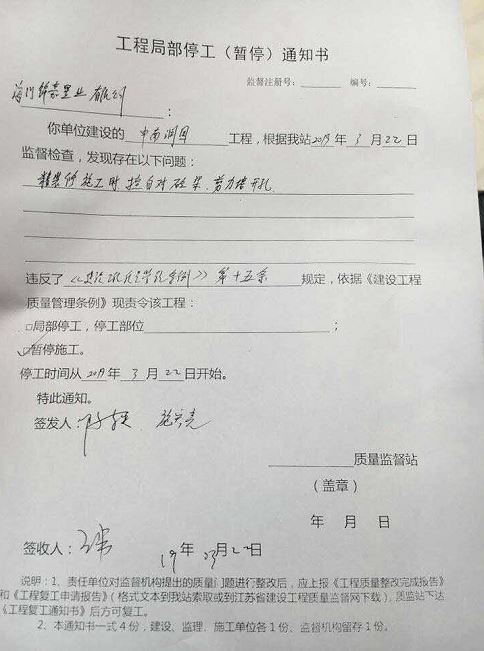 工程局部停工（暂停）通知书
监督注册号：______ 编号：______
海门锦嘉置业有限公司：
你单位建设的 中南 工程，根据我站2019年3月22日
监督检查，发现存在以下问题：
精装修施工时擅自对砼梁、剪力墙开孔
违反了《建设工程质量管理条例》第十五条 规定，依据《建设工程
质量管理条例》现责令该工程：
□局部停工，停工部位______；
☑暂停施工。
停工时间从2019年3月22日开始。
特此通知。
签发人：
______质量监督站
（盖章）
年 月 日
签收人：
19年03月22日
说明：1、责任单位对监督机构提出的质量问题进行整改后，应上报《工程质量整改完成报告》
和《工程复工申请报告》（格式文本到我站索取或到江苏省建设工程质量监督网下载），质监站下达
《工程复工通知书》后方可复工。
2、本通知书一式4份，建设、监理、施工单位各1份、监督机构留存1份。